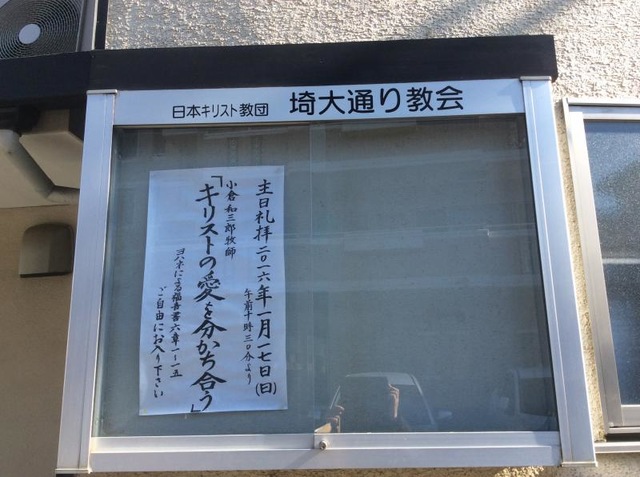 日本キリスト教団 埼大通り教会
主日礼拝 二〇一六年一月一七日(日)
午前十時三〇分より
小倉和三郎牧師
「キリストの愛を分かち合う」
ヨハネによる福音書六章一–一五
ご自由にお入り下さい